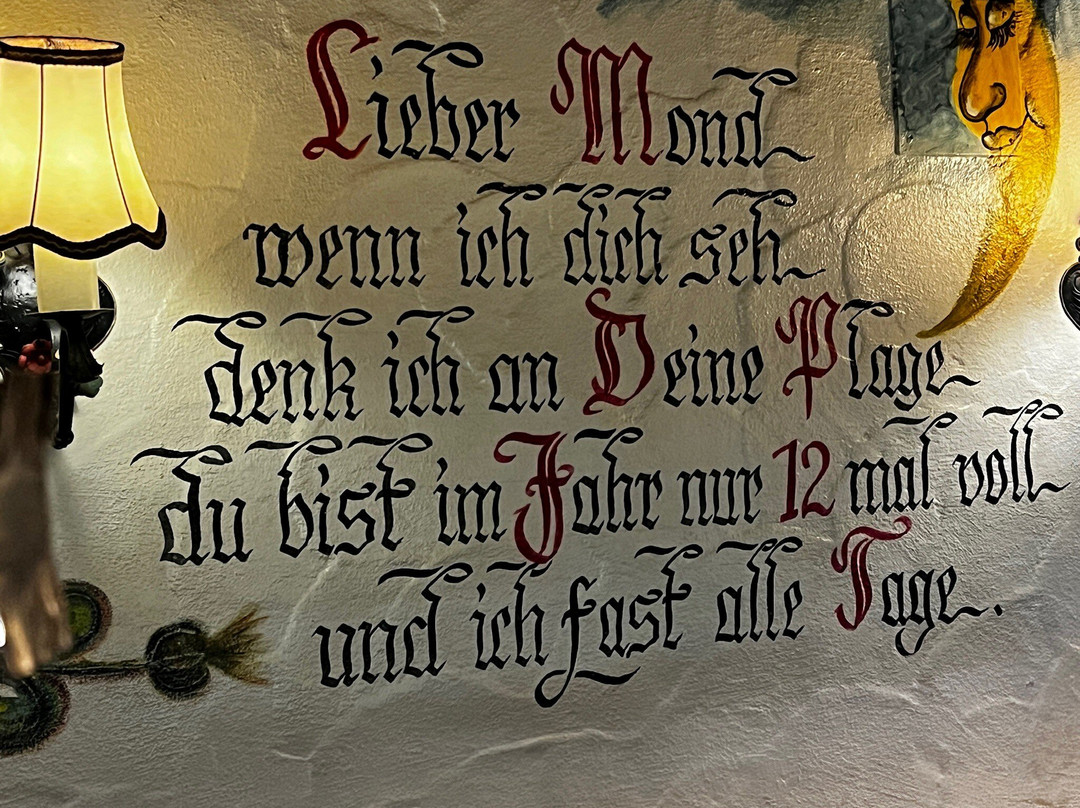 Lieber Mond
wenn ich dich seh
denk ich an Deine Plage
du bist im Jahr nur 12 mal voll
und ich fast alle Tage.